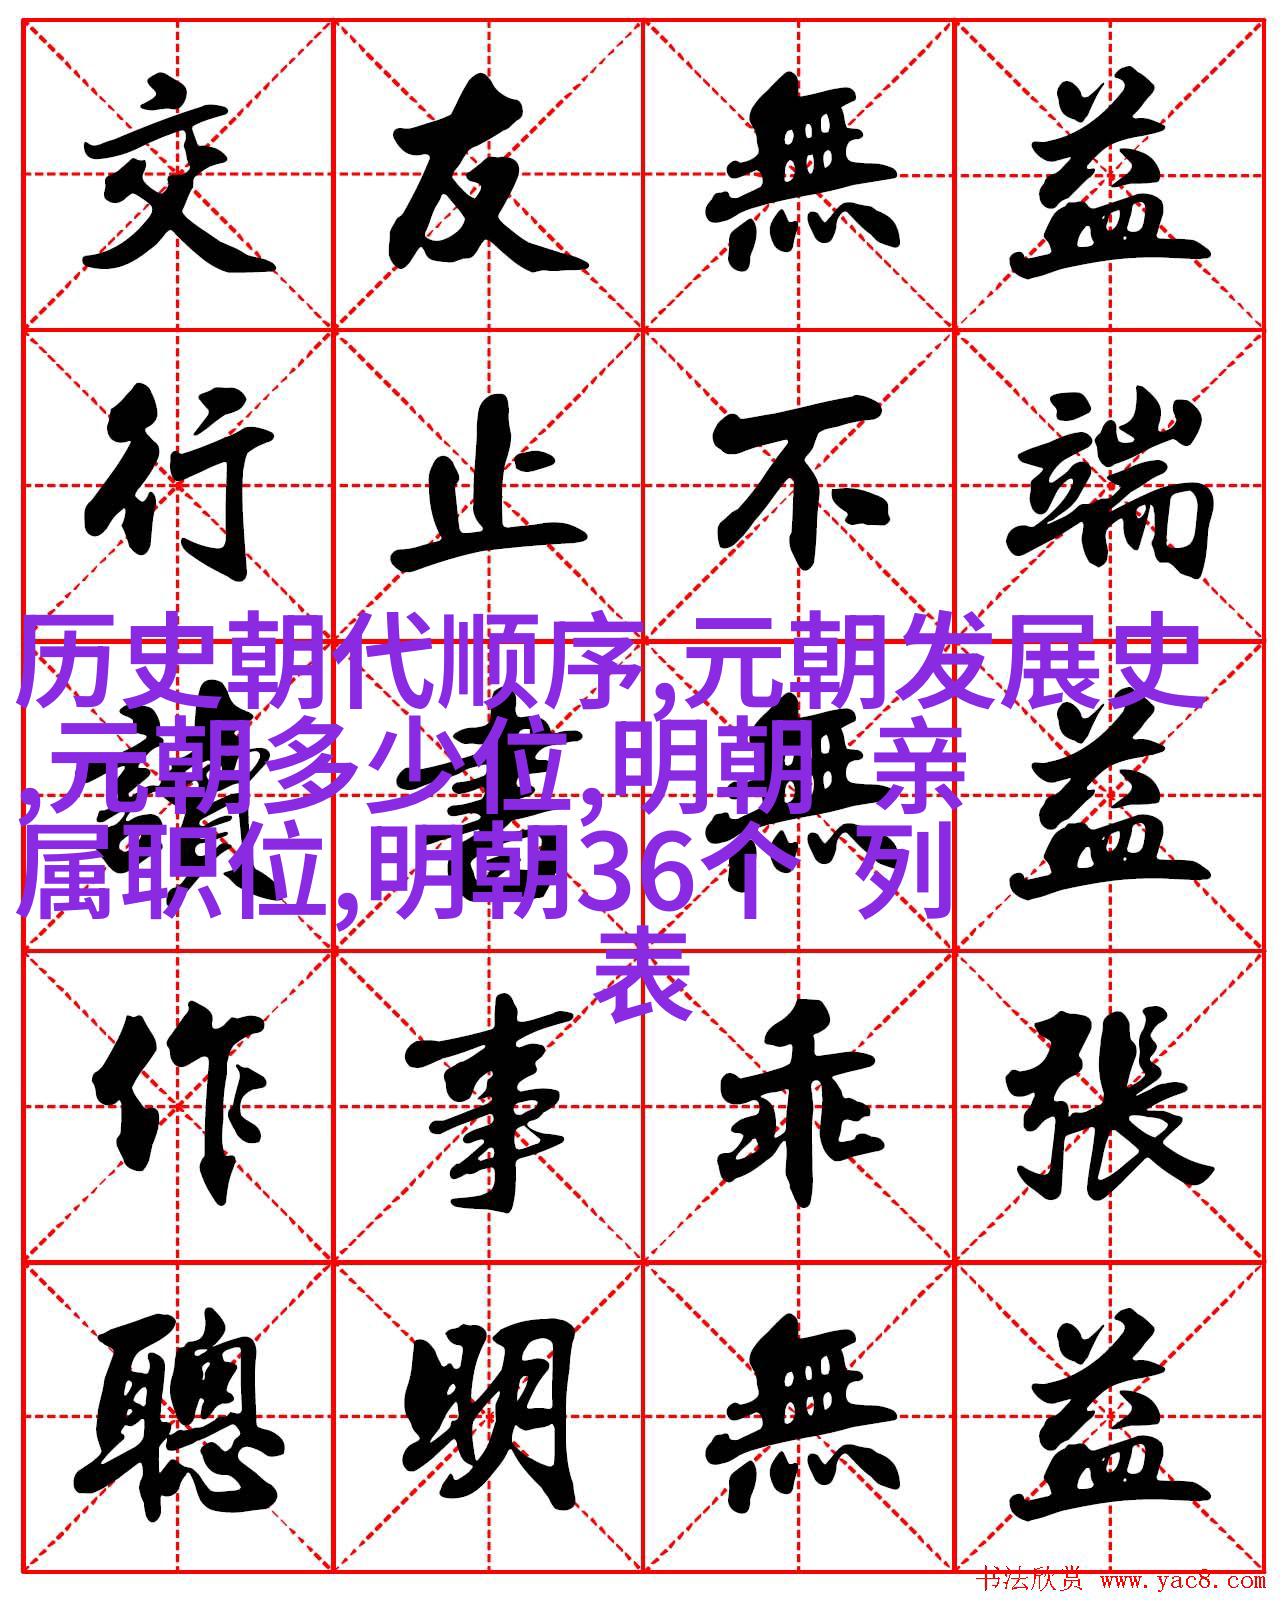 交友無益
行止不端
讀書無益
作事乖張
聰明無益
历史朝代顺序,元朝发展史
,元朝多少位,明朝 亲
属职位,明朝36个 列
表
书法欣赏 www.yac8.com